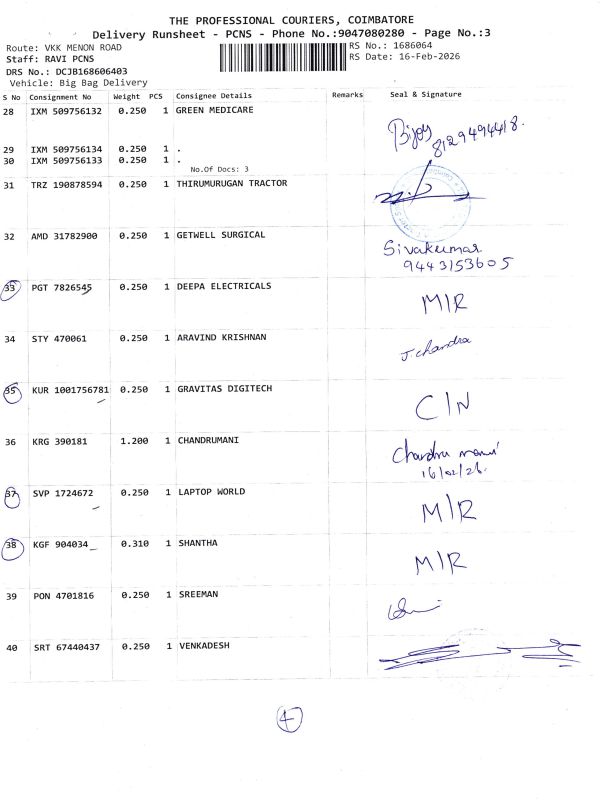 THE PROFESSIONAL COURIERS, COIMBATORE
Delivery Runsheet - PCNS - Phone No.:9047080280 - Page No.:3
Route: VKK MENON ROAD RS No.: 1686064
Staff: RAVI PCNS RS Date: 16-Feb-2026
DRS No.: DCJB168606403
Vehicle: Big Bag Delivery
S No Consignment No Weight PCS Consignee Details Remarks Seal & Signature
28 IXM 509756132 0.250 1 GREEN MEDICARE
Bijoy 8129494418.
29 IXM 509756134 0.250 1 .
30 IXM 509756133 0.250 1 .
No.Of Docs: 3
31 TRZ 190878594 0.250 1 THIRUMURUGAN TRACTOR
32 AMD 31782900 0.250 1 GETWELL SURGICAL
Sivakumar
9443153605
33 PGT 7826545 0.250 1 DEEPA ELECTRICALS M/R
34 STY 470061 0.250 1 ARAVIND KRISHNAN J. chandra
35 KUR 1001756781 0.250 1 GRAVITAS DIGITECH C/N
36 KRG 390181 1.200 1 CHANDRUMANI Chandru mani
16/02/26.
37 SVP 1724672 0.250 1 LAPTOP WORLD M/R
38 KGF 904034 0.310 1 SHANTHA M/R
39 PON 4701816 0.250 1 SREEMAN
40 SRT 67440437 0.250 1 VENKADESH
4